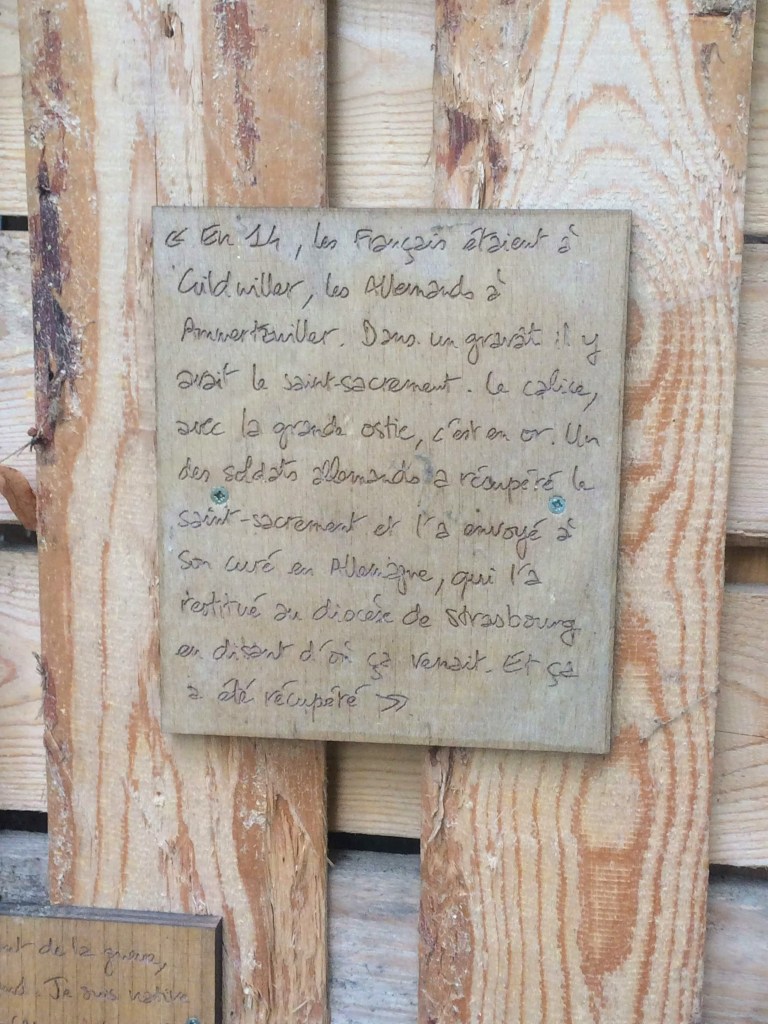 « En 14, les Français étaient à
Guildwiller, les Allemands à
Ammertzwiller. Dans un gravât il y
avait le saint-sacrement. Le calice,
avec la grande ostie, c'est en or. Un
des soldats allemands a récupéré le
saint-sacrement et l'a envoyé à
son curé en Allemagne, qui l'a
restitué au diocèse de Strasbourg
en disant d'où ça venait. Et ça
a été récupéré »
de la guerre,
Je suis native